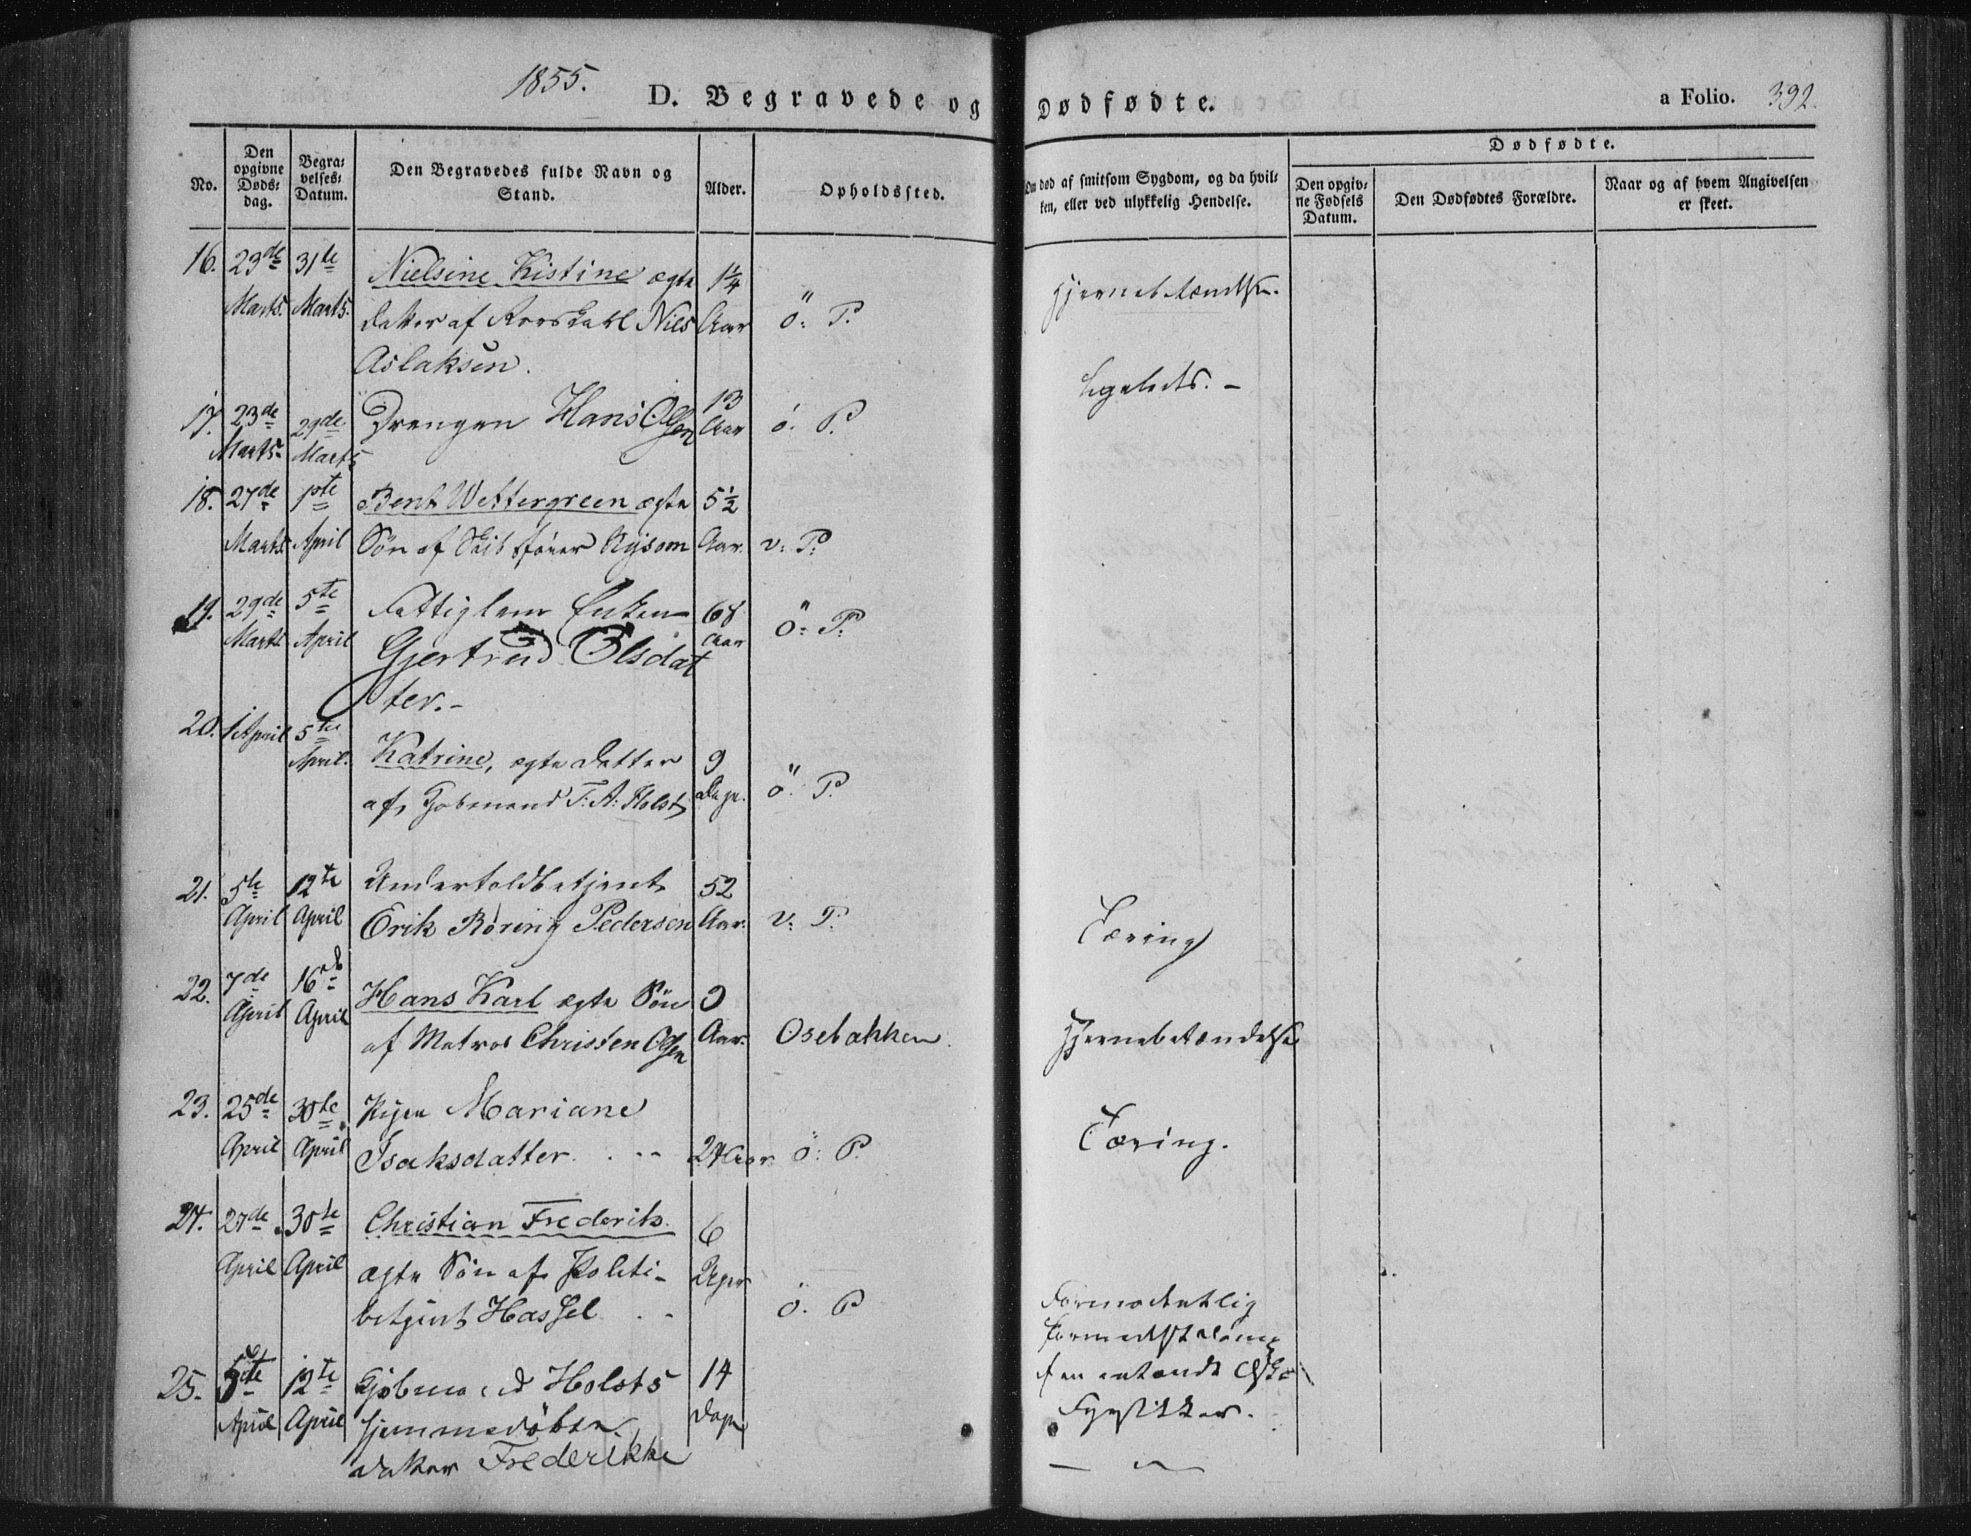 1855.
D. Begravede og Dødfødte.
a Folio. 392.
No.
Den opgivne Døds: dag.
Begra: velses: Datum.
Den Begravedes fulde Navn og Stand.
Alder.
Opholdssted.
Om død af smitsom Sygdom, og da hvil: ken, eller ved ulykkelig Hendelse.
Dødfødte.
Den opgiv: ne Fødsels Datum.
Den Dødfødtes Forældre.
Naar og af hvem Angivelsen er skeet.
16. 23de 31te Nielsine Kistine ægte 1¼
Marts. Marts. datter af Nils Aar ö: P.
Aslaksen.
Hjernebetændelse.
17. 23de 29de Drengen Hans Olsen 13
Marts. Marts Aar ö. P.
ligeledes. -
18. 27de 1ste Bent Wettergreen ægte 5½
Marts April Søn af Skibsfører Nysom Aar. v: P:
19. 29de 5te Fattiglem Enken 68
Marts April Gjertrud Olsdat Aar Ö: P:
ter. -
20. 1 April 5te
April. Katrine, ægte datter 9
af Kjøbmand T: A: Holst Dage. ö. P.
21. 5te 12te Undertoldbetjent 52
April April Erik Røring Pedersen Aar. v: P.
Tæring
22. 7de 16de Hans Karl ægte Søn 9
April April af Matros Christen Olsen Aar. Osebakken.
Hjernebetændelse
23. 25de 30te Pigen Mariane
April April Isaksdatter. . -- 24 Aar ö: P.
Tæring.
24. 27de 30te Christian Frederik 6
April April ægte Søn af Politi-
betjent Hassel . - ö. P
Formodentlig
Fyrstikker.
25. 5te 12te Kjøbmand Holsts 14
April April hjemmedøbte Dage
datter Frederikke